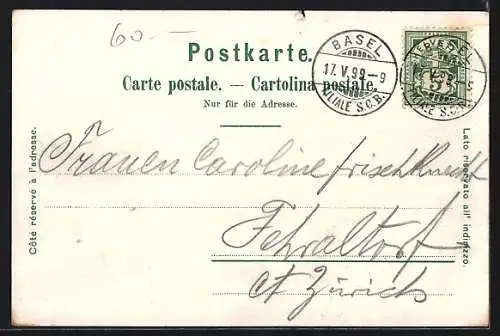 60 —
Postkarte.
Carte postale. — Cartolina postale.
Nur für die Adresse.
BASEL
17. V. 99. – 9
FILIALE S.C.B.
BASEL
FILIALE S.C.B.
HELVETIA
5
Côté réservé à l'adresse.
Lato riservato all' indirizzo.
Frauen Caroline Frischknecht
Fehraltorf
Ct Zürich